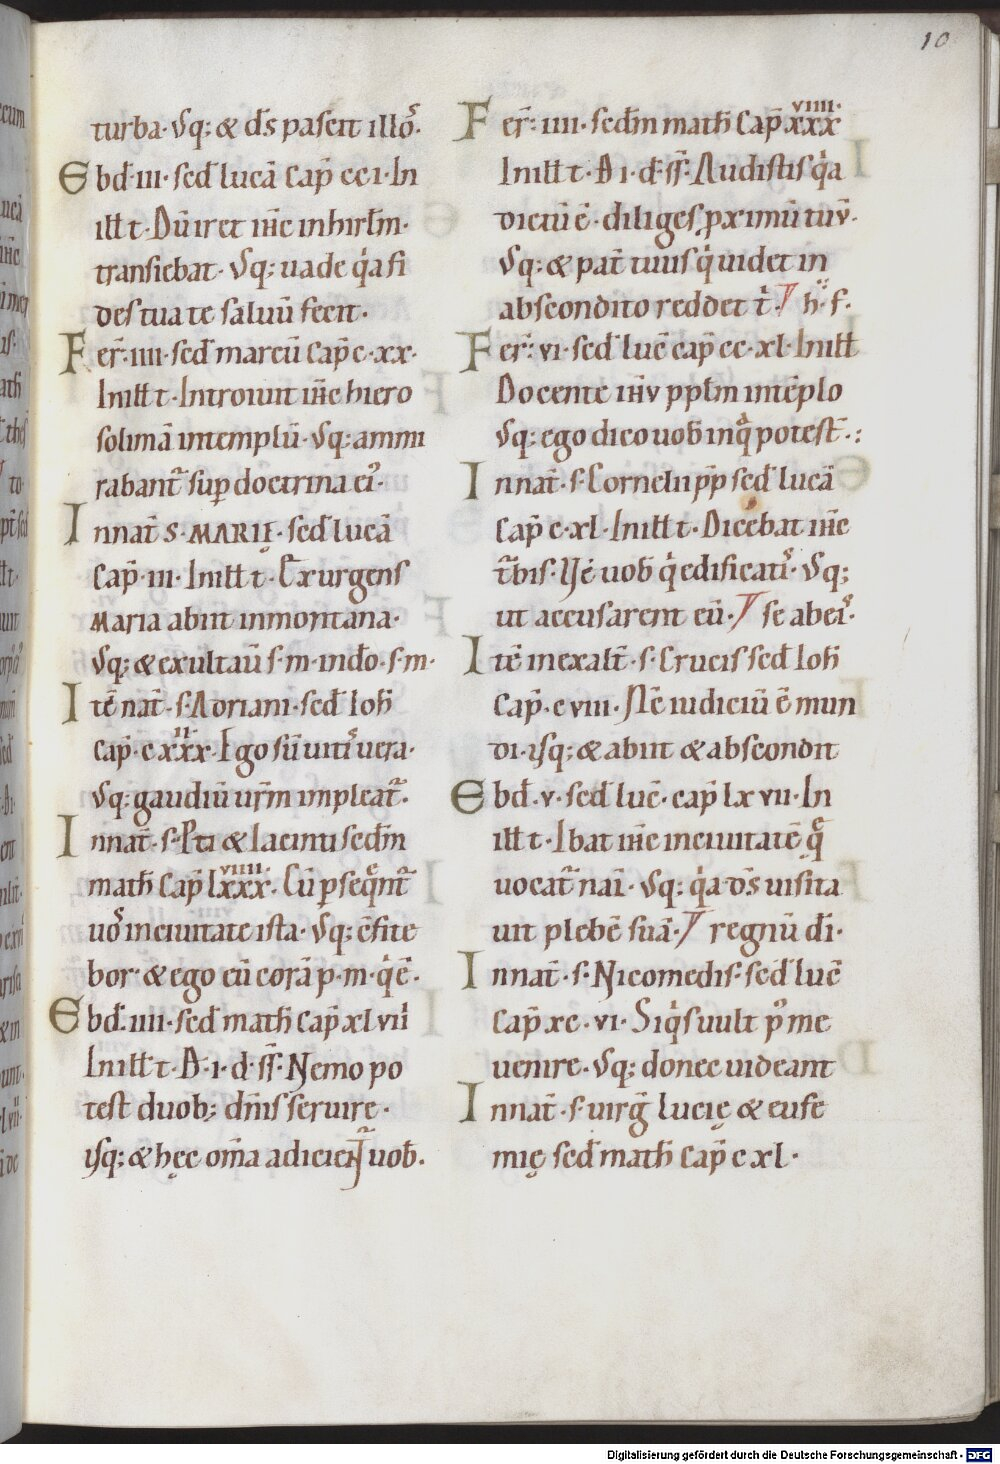 10
turba· Usq; & d̄s pascit illos̄·
Ebd̄·iii· sed̄ lucā cap̄ cci· In
ill̄ t̄· Dū iret ih̄c in hirl̄m·
transiebat· Usq; uade q̇a fi
des tua te saluū fecit·
Fer̄· iiii· sed̄ marcū cap̄ c·xx·
In ill̄ t̄· Introiuit ih̄c hiero
solimā in templū· Usq; ammi
rabant̄ sup doctrina ei᾽·
In nat̄ S· MARIĘ· sed̄ lucā
cap̄· iii· In ill̄ t̄· Exurgens
Maria abiit in montana·
Usq; & exultau̅ s̅·m· in do̅· s·m·
Itē nat̄· s· Adriani· sed̄ Ioh̄
cap̄· cxxxii· Ego sū uitis uera·
Usq; gaudiū ur̄m impleat̄·
In nat̄· s· P̄ti & Iacinti sed̄m
math̄ cap̄ lxxxviiii· Cū p̱seq̄nt̄
uos̄ in ciuitate ista· Usq; c̄fite
bor· & ego eū corā p·m· q̇ ē·
Ebd̄· iiii· sed̄ math̄ cap̄ xlvii
In ill̄ t̄· D·i·d·s̄s̄· Nemo po
test duob; dn̄is seruire·
usq; & hęc om̄a adicient̄ uob̄·
Fer̄· iiii· sed̄m math̄ cap̄ xxxviiii·
In ill̄ t̄· D i·d· s̄s̄· Audistis q̇a
dictū ē· diliges p̱ximū tuū·
Usq; & pat̄ tuus q̇ uidet in
abscondito reddet t̄· h·s·
Fer̄· vi· sed̄ luc̄ cap̄ cc·xl· In ill̄ t̄
Docente ih̄u ppl̄m in tēplo
Usq; ego dico uob̄ in q̄ potest̄·:
In nat̄· s· Cornelii pp̄ sed̄ lucā
cap̄ c·xl· In ill̄ t̄· Dicebat ih̄c
t̄bis· Uę uob̄ q̇ edificatis· Usq;
ut accusarent eū· se abei·
Itē in exalt̄· s· Crucis sed̄ Ioh̄
cap̄· cviii· Nc̄ iudiciū ē mun
di· usq; & abiit & abscondit
Ebd̄· v· sed̄ luc̄· cap̄ lxvii· In
ill̄ t̄· Ibat ih̄c in ciuitatē q̄
uocat̄ naī· Usq; q̇a d̄s uisita
uit plebē suā· regnū dī·
In nat̄· s· Nicomedis· sed̄ luc̄
cap̄ xc·vi· Siq̇s uult p᾽ me
uenire· Usq; donec uideant
In nat̄· s· uirḡ lucię & eufe
mię sed̄ math̄ cap̄ c xl·
Digitalisierung gefördert durch die Deutsche Forschungsgemeinschaft - DFG